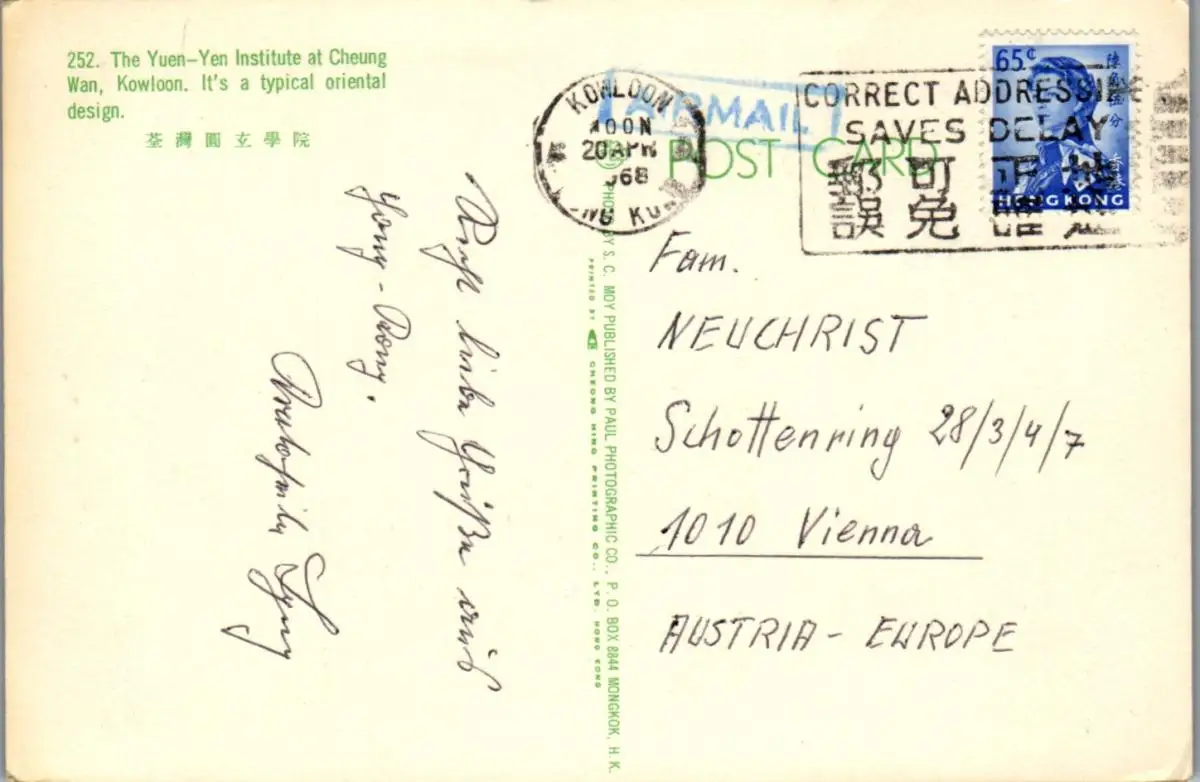 252. The Yuen-Yen Institute at Cheung
Wan, Kowloon. It's a typical oriental
design.
荃灣圓玄學院
KOWLOON
NOON
20 APR
1968
HONG KONG
AIRMAIL
POST CARD
CORRECT ADDRESSING
SAVES DELAY
65¢
香港
HONG KONG
Recht liebe Grüße aus
Hong-Kong.
Fam.
NEUCHRIST
Schottenring 28/3/4/7
1010 Vienna
AUSTRIA - EUROPE
PHOTO BY S. C. MOY PUBLISHED BY PAUL PHOTOGRAPHIC CO., P. O. BOX 8844 MONGKOK, H. K.
PRINTED BY CHEONG MING PRINTING CO., LTD. HONG KONG